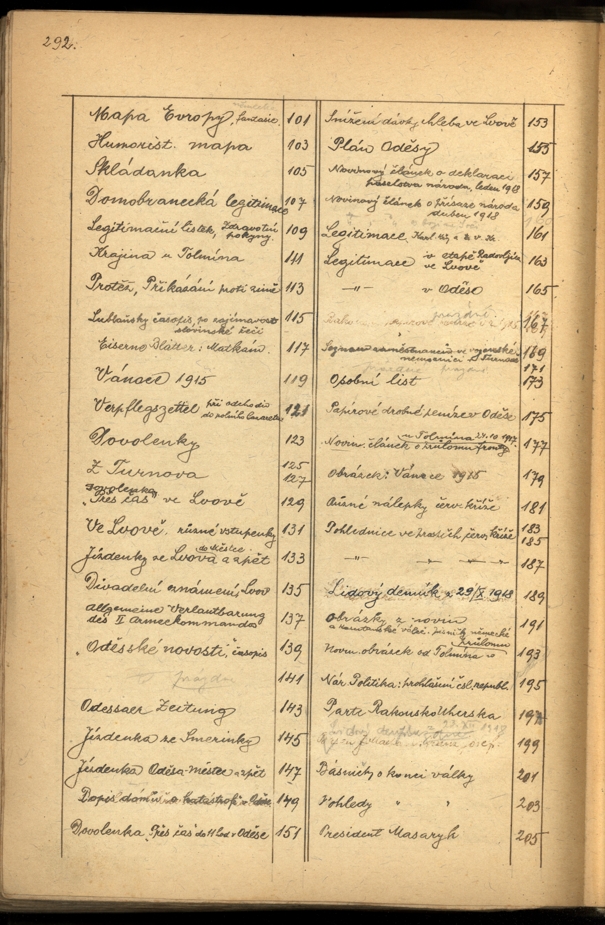 292.
Mapa Evropy, fantasie. 101
Humorist. mapa 103
Skládanka 105
Domobranecká legitimace 107
Legitimační lístek, Zdravotní pokyny. 109
Krajina u Tolmína 111
Protěž, Přikázání proti zimě 113
Lublaňský časopis, po zajímavost
slovinské řeči 115
Eiserne Blätter: Matkám. 117
Vánoce 1915 119
Verpflegszettel při odchodu
do polního lazaretu 121
Dovolenky 123
Z Turnova 125
127
Dovolenka
"Přes čas" ve Lvově 129
Ve Lvově, různé vstupenky 131
Jízdenky ze Lvova do města a zpět 133
Divadelní oznámení, Lvov 135
Allgemeine Verlautbarung
des II Armeekommandos 137
"Oděsské novosti", časopis 139
prázdn 141
Odessaer Zeitung 143
Jízdenka ze Šmerinky 145
Jízdenka Oděsa-město a zpět 147
Dopis domů o katastrofě v Oděse 149
Dovolenka "Přes čas" do 11 hod. v Oděse 151
Snížení dávky chleba ve Lvově 153
Plán Oděsy 155
Novinový článek o deklaraci
národa, leden 1918 157
Novinový článek o přísaze národa
duben 1918 159
Legitimace, Karl tr. 161
Legitimace v etapě
ve Lvově 163
-"- v Oděse 165
prázdné
167
Seznam zaměstnanců ve vojenské
nemocnici 169
171
Osobní list 173
Papírové drobné peníze v Oděse 175
u Tolmína 24.10.1917.
Novin. článek o průlomu fronty 177
Obrázek: Vánoce 1915 179
Různé nálepky červ. kříže 181
Pohlednice ve prospěch červ. kříže 183
185
-"- 187
Lidový denník z 29/X 1918 189
Obrázky z novin
191
průlomu
Novin. obrázek od Tolmína 193
Nár. Politika: prohlášení čsl. republ. 195
Parte Rakousko Uherska 197
199
Básničky o konci války 201
Pohledy " " 203
President Masaryk 205